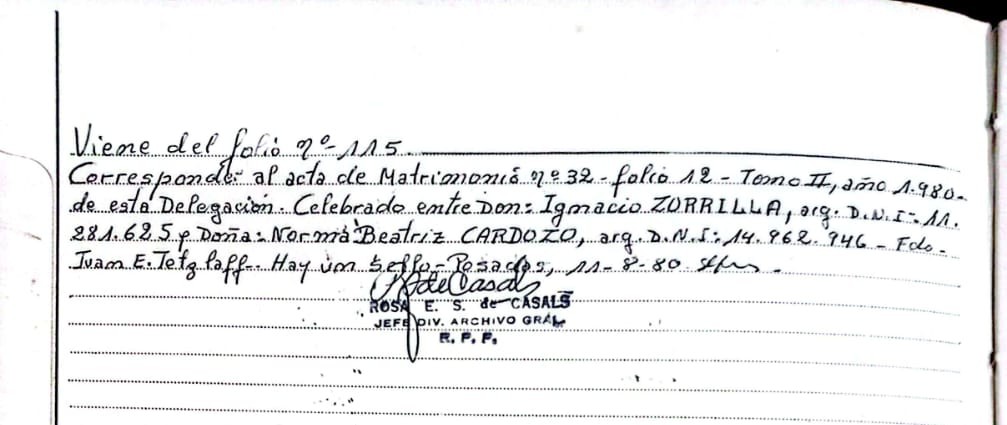 Viene del folio nº 115.
Corresponde: al acta de Matrimonio nº 32 - folio 12 - Tomo II, año 1.980-
de esta Delegación. Celebrado entre Don: Ignacio ZORRILLA, arg. D.N.I: 11.
281.625 y Doña: Norma Beatriz CARDOZO, arg. D.N.I: 14.962.946 - Fdo-
Juan E. Tetzlaff - Hay un Sello - Posadas, 11-8-80
RdeCasals
ROSA E. S. de CASALS
JEFE DIV. ARCHIVO GRAL.
R. P. P.